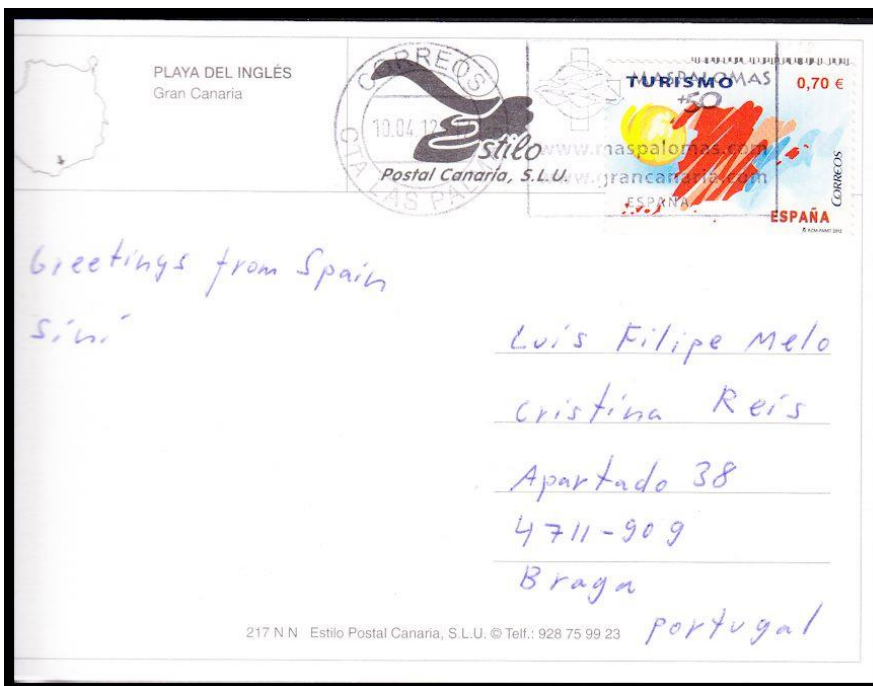 PLAYA DEL INGLÉS
Gran Canaria
CORREOS
10.04.12
CTA LAS PALMAS
Estilo
Postal Canaria, S.L.U.
MASPALOMAS
+50
www.maspalomas.com
www.grancanaria.com
ESPAÑA
TURISMO
0,70 €
CORREOS
ESPAÑA
Greetings from Spain
Sini
Luis Filipe Melo
Cristina Reis
Apartado 38
4711-909
Braga
Portugal
217 N N Estilo Postal Canaria, S.L.U. © Telf.: 928 75 99 23